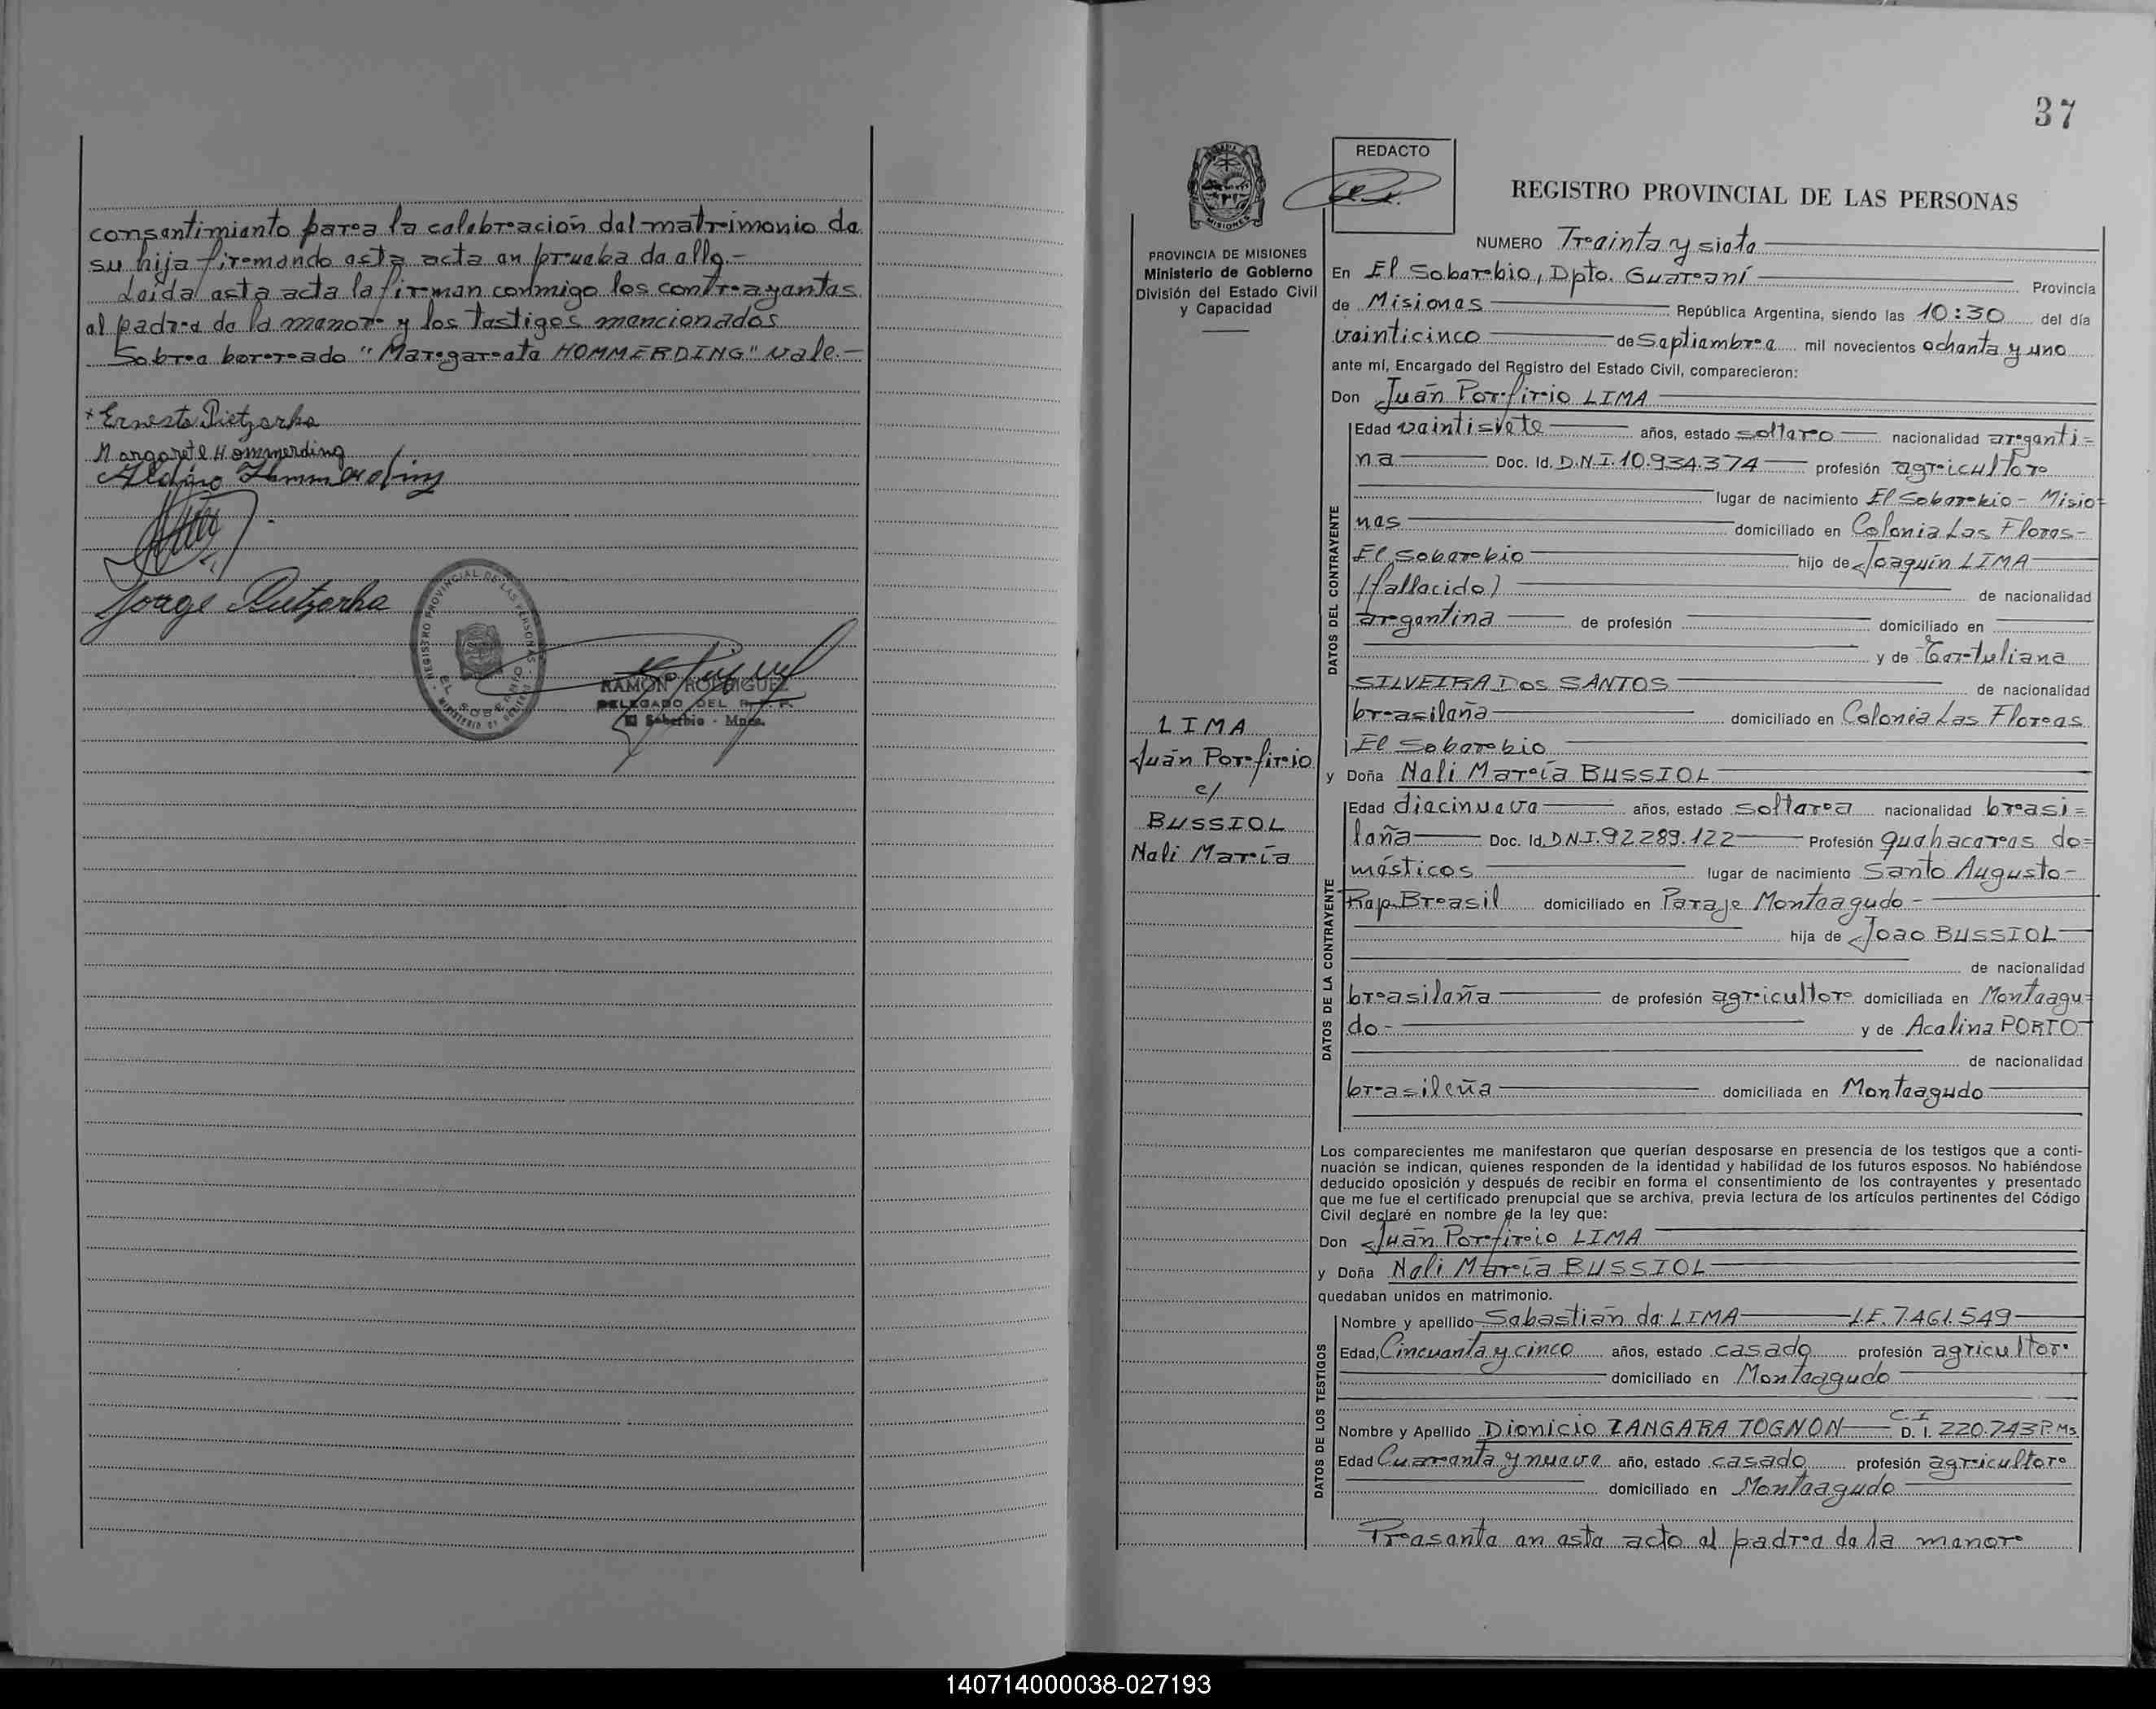 consentimiento para la celebración del matrimonio de
su hija firmando esta acta en prueba de ello.-
Leida esta acta la firman conmigo los contrayentes
el padre de la menor y los testigos mencionados
Sobre borreado "Margarete HOMMERDING" vale.-
x Ernesto Pietzarka
Margarete Hommerding
Jorge
REGISTRO PROVINCIAL DE LAS PERSONAS
EL SOBERBIO
MINISTERIO DE GOBIERNO
RAMON RODRIGUEZ
DELEGADO DEL R. P. P.
El Soberbio - Mnes.
37
REDACTO
MISIONES
REGISTRO PROVINCIAL DE LAS PERSONAS
PROVINCIA DE MISIONES
Ministerio de Gobierno
División del Estado Civil
y Capacidad
NUMERO Treinta y siete
En El Soberbio, Dpto. Guaraní Provincia
de Misiones República Argentina, siendo las 10:30 del día
veinticinco de Septiembre mil novecientos ochenta y uno
ante mí, Encargado del Registro del Estado Civil, comparecieron:
Don Juán Porfirio LIMA
DATOS DEL CONTRAYENTE
Edad veintisiete años, estado soltero nacionalidad argenti=
na Doc. Id. D.N.I. 10.934.374 profesión agricultor
lugar de nacimiento El Soberbio - Misio=
nes domiciliado en Colonia Las Flores-
El Soberbio hijo de Joaquín LIMA
(fallecido) de nacionalidad
argentina de profesión domiciliado en
y de Tertuliana
SILVEIRA DOS SANTOS de nacionalidad
brasileña domiciliado en Colonia Las Flores
El Soberbio
LIMA
Juán Porfirio
c/
BUSSIOL
Neli María
y Doña Neli María BUSSIOL
DATOS DE LA CONTRAYENTE
Edad diecinueve años, estado soltera nacionalidad brasi=
leña Doc. Id. DNI. 92289.122 Profesión quehaceres do=
mésticos lugar de nacimiento Santo Augusto-
Rep. Brasil domiciliado en Paraje Monteagudo-
hija de Joao BUSSIOL
de nacionalidad
brasileña de profesión agricultor domiciliada en Monteagu=
do- y de Acelina PORTO
de nacionalidad
brasileña domiciliada en Monteagudo
Los comparecientes me manifestaron que querían desposarse en presencia de los testigos que a conti-
nuación se indican, quienes responden de la identidad y habilidad de los futuros esposos. No habiéndose
deducido oposición y después de recibir en forma el consentimiento de los contrayentes y presentado
que me fue el certificado prenupcial que se archiva, previa lectura de los artículos pertinentes del Código
Civil declaré en nombre de la ley que:
Don Juán Porfirio LIMA
y Doña Neli María BUSSIOL
quedaban unidos en matrimonio.
DATOS DE LOS TESTIGOS
Nombre y apellido Sebastián de LIMA L.E. 7.461.549
Edad, Cincuenta y cinco años, estado casado profesión agricultor
domiciliado en Monteagudo
Nombre y Apellido Dionicio ZANGARA TOGNON C.I. D. I. 220.743 P. Ms.
Edad Cuarenta y nueve año, estado casado profesión agricultor
domiciliado en Monteagudo
Presente en este acto el padre de la menor
140714000038-027193